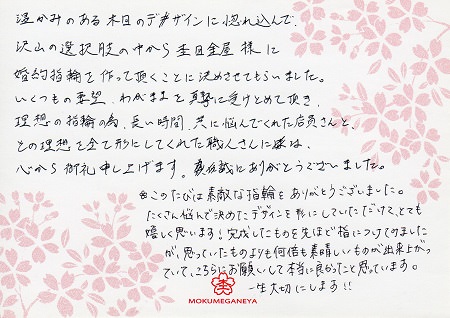 温かみのある木目のデザインに惚れ込んで、
沢山の選択肢の中から杢目金屋様に
婚約指輪を作って頂くことに決めさせてもらいました。
いくつもの要望、わがままを真摯に受けとめて頂き、
理想の指輪の為、長い時間、共に悩んでくれた店員さんと、
その理想を全て形にしてくれた職人さんに様は、
心から御礼申し上げます。誠にありがとうございました。
※このたびは素敵な指輪をありがとうございました。
たくさん悩んで決めたデザインを形にしていただけて、とても
嬉しく思います！完成したものを先ほど指につけてみました
が、思っていたものよりも何倍も素晴しいものが出来上がっ
ていて、こちらにお願いして本当に良かったと思っています。
一生大切にします!!
MOKUMEGANEYA